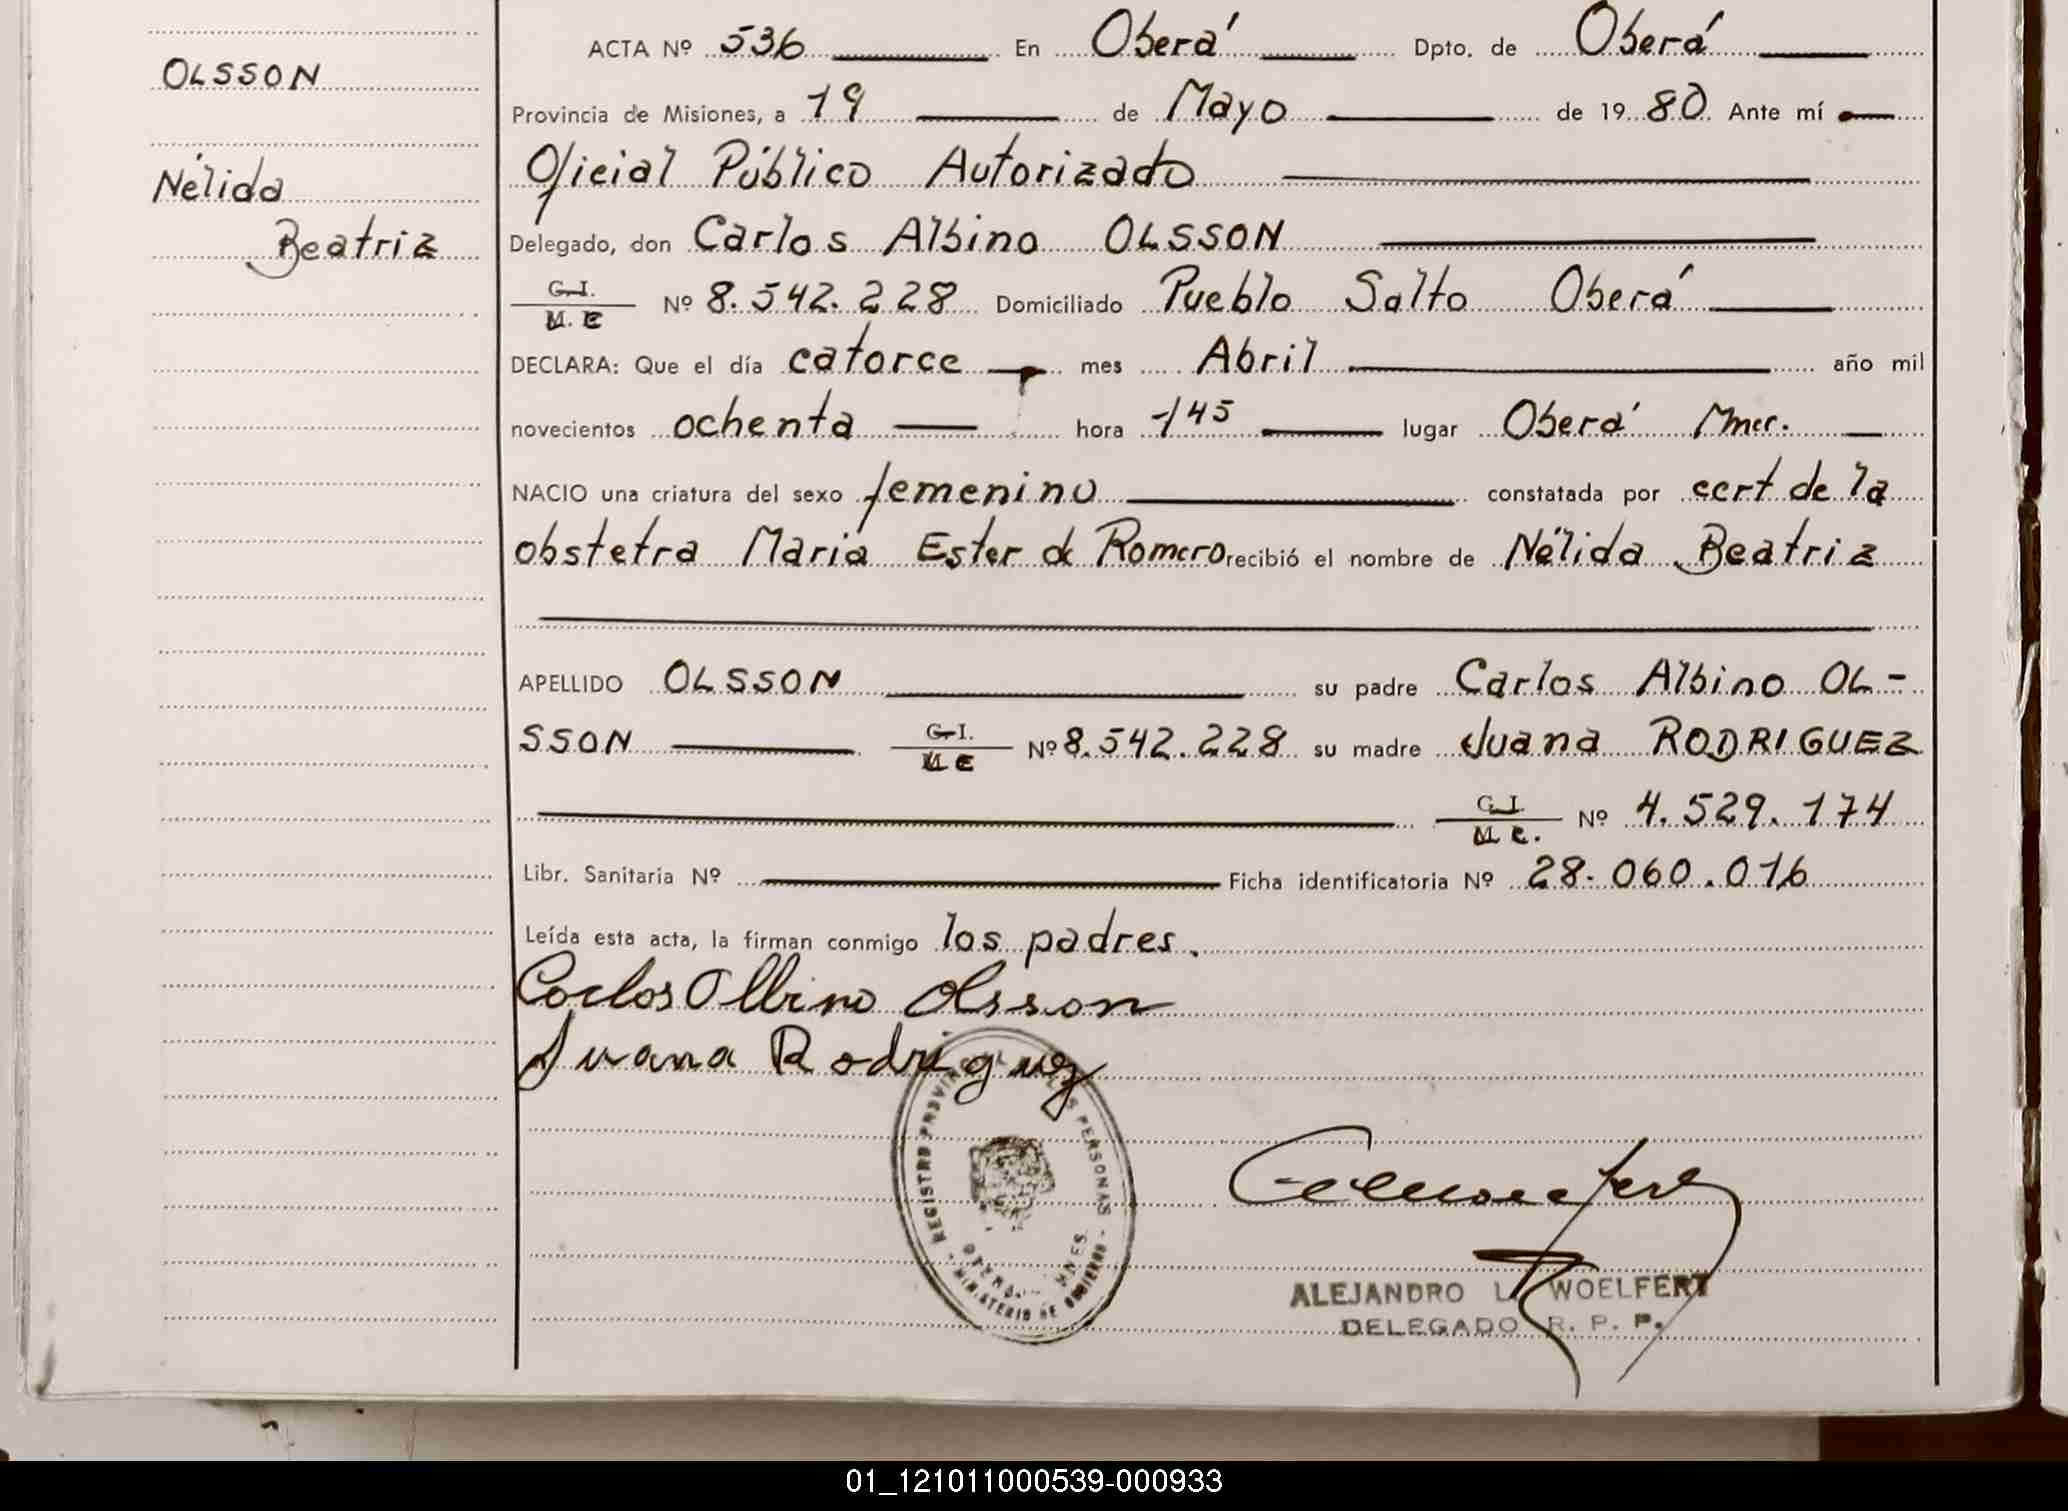 OLSSON
Nélida
Beatriz
ACTA Nº 536 En Oberá Dpto. de Oberá
Provincia de Misiones, a 19 de Mayo de 1980 Ante mí
Oficial Público Autorizado
Delegado, don Carlos Albino OLSSON
C.I.
M.C Nº 8.542.228 Domiciliado Pueblo Salto Oberá
DECLARA: Que el día catorce mes Abril año mil
novecientos ochenta hora 145 lugar Oberá Mnes.
NACIO una criatura del sexo femenino constatada por cert de la
obstetra Maria Ester de Romero recibió el nombre de Nélida Beatriz
APELLIDO OLSSON su padre Carlos Albino OL-
SSON C.I. Nº 8.542.228 su madre Juana RODRIGUEZ
M C
C.I. Nº 4.529.174
M C.
Libr. Sanitaria Nº Ficha identificatoria Nº 28.060.016
Leída esta acta, la firman conmigo los padres.
Carlos Albino Olsson
Juana Rodriguez
REGISTRO PROVINCIAL DE LAS PERSONAS
MINISTERIO DE GOBIERNO
ALEJANDRO L. WOELFERT
DELEGADO R. P. P.
01_121011000539-000933